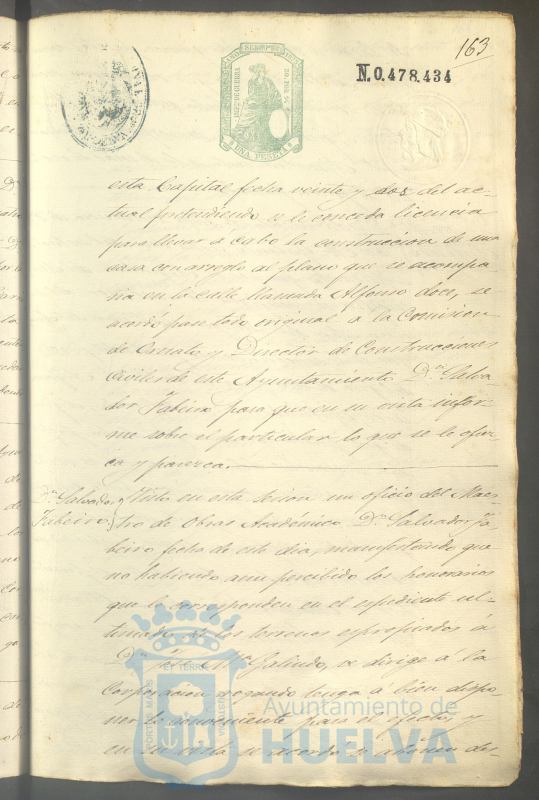 163
N.0.478.434
UNA PESETA
esta Capital fecha veinte y dos del ac-
tual pretendiendo se le conceda licencia
para llevar á cabo la construccion de una
casa con arreglo al plano que se acompa-
ña en la calle llamada Alfonso doce, se
acordó pase todo original a la Comision
de Ornato y Director de Construcciones
Civiles de este Ayuntamiento Dn. Salva-
dor Fabeiro para que en su vista infor-
me sobre el particular lo que se le ofrez-
ca y parezca.
Dn. Salvador
Fabeiro
Visto en esta sesion un oficio del Maes-
tro de Obras Académico Dn. Salvador Fa-
beiro fecha de este dia, manifestando que
no habiendo aun percibido los honorarios
que le corresponden en el espediente ul-
timado de los terrenos espropiados á
Dn. Mª Galindo, se dirige á la
Corporacion rogando tenga á bien dispo-
ner lo conveniente para el efecto; y
en su vista se acordó se des-
PORTUS MARIS
ET TERRE
CUSTODIA
Ayuntamiento de
HUELVA